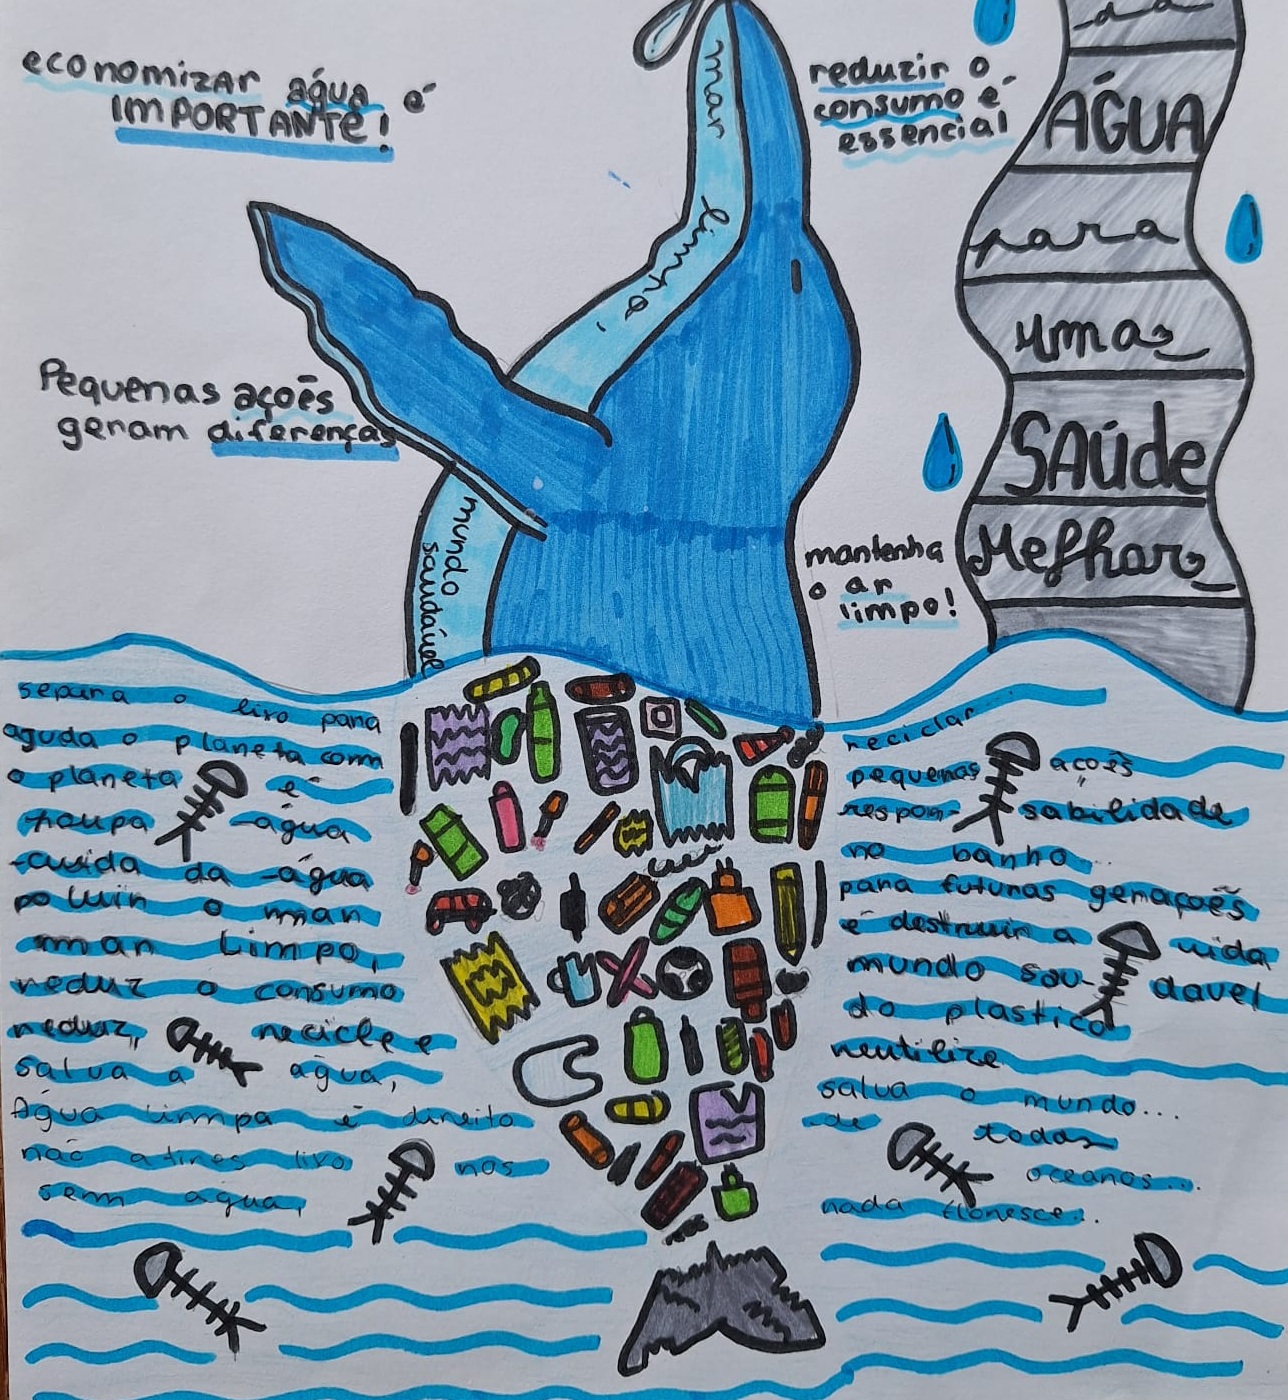 economizar água é
IMPORTANTE!
mar limpo,
reduzir o
consumo é
essencial
da
ÁGUA
para
uma
SAÚDE
Melhor
Pequenas açoẽs
geram diferenças
mundo
saudável
mantenha
o ar
limpo!
separa o lixo para
aguda o planeta com
o planeta é
poupa água
cuida da água
poluir o mar
mar limpo,
reduz o consumo
reduz, recicle e
salva a água,
Água limpa é direito
não atires lixo nos
sem água,
reciclar
pequenas açoẽs
respon- sabilidade
no banho...
para futuras geraçoẽs
é destruir a vida
mundo sau- davel
do plastico
reutilize
salva o mundo...
de todos
oceanos...
nada floresce...